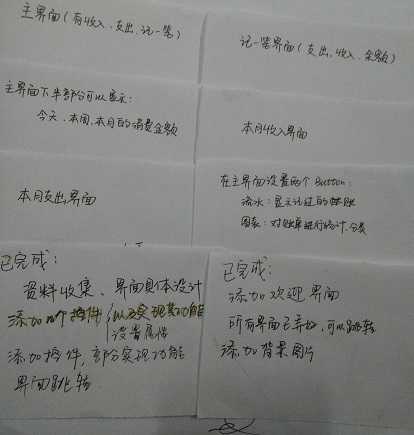 主界面(有收入、支出、记一笔)
记一笔界面(支出、收入、余额)
主界面下半部分可以显示:
今天、本周、本月的消费金额
本月收入界面
本月支出界面
在主界面设置两个Button:
流水:显示记过的账账
图表:对账单进行统计、分类
已完成:
资料收集、界面具体设计
添加各个控件,以及实现其功能
设置属性
添加控件,部分实现功能
界面跳转
已完成:
添加欢迎界面
所有界面已弄好,可以跳转
添加背景图片